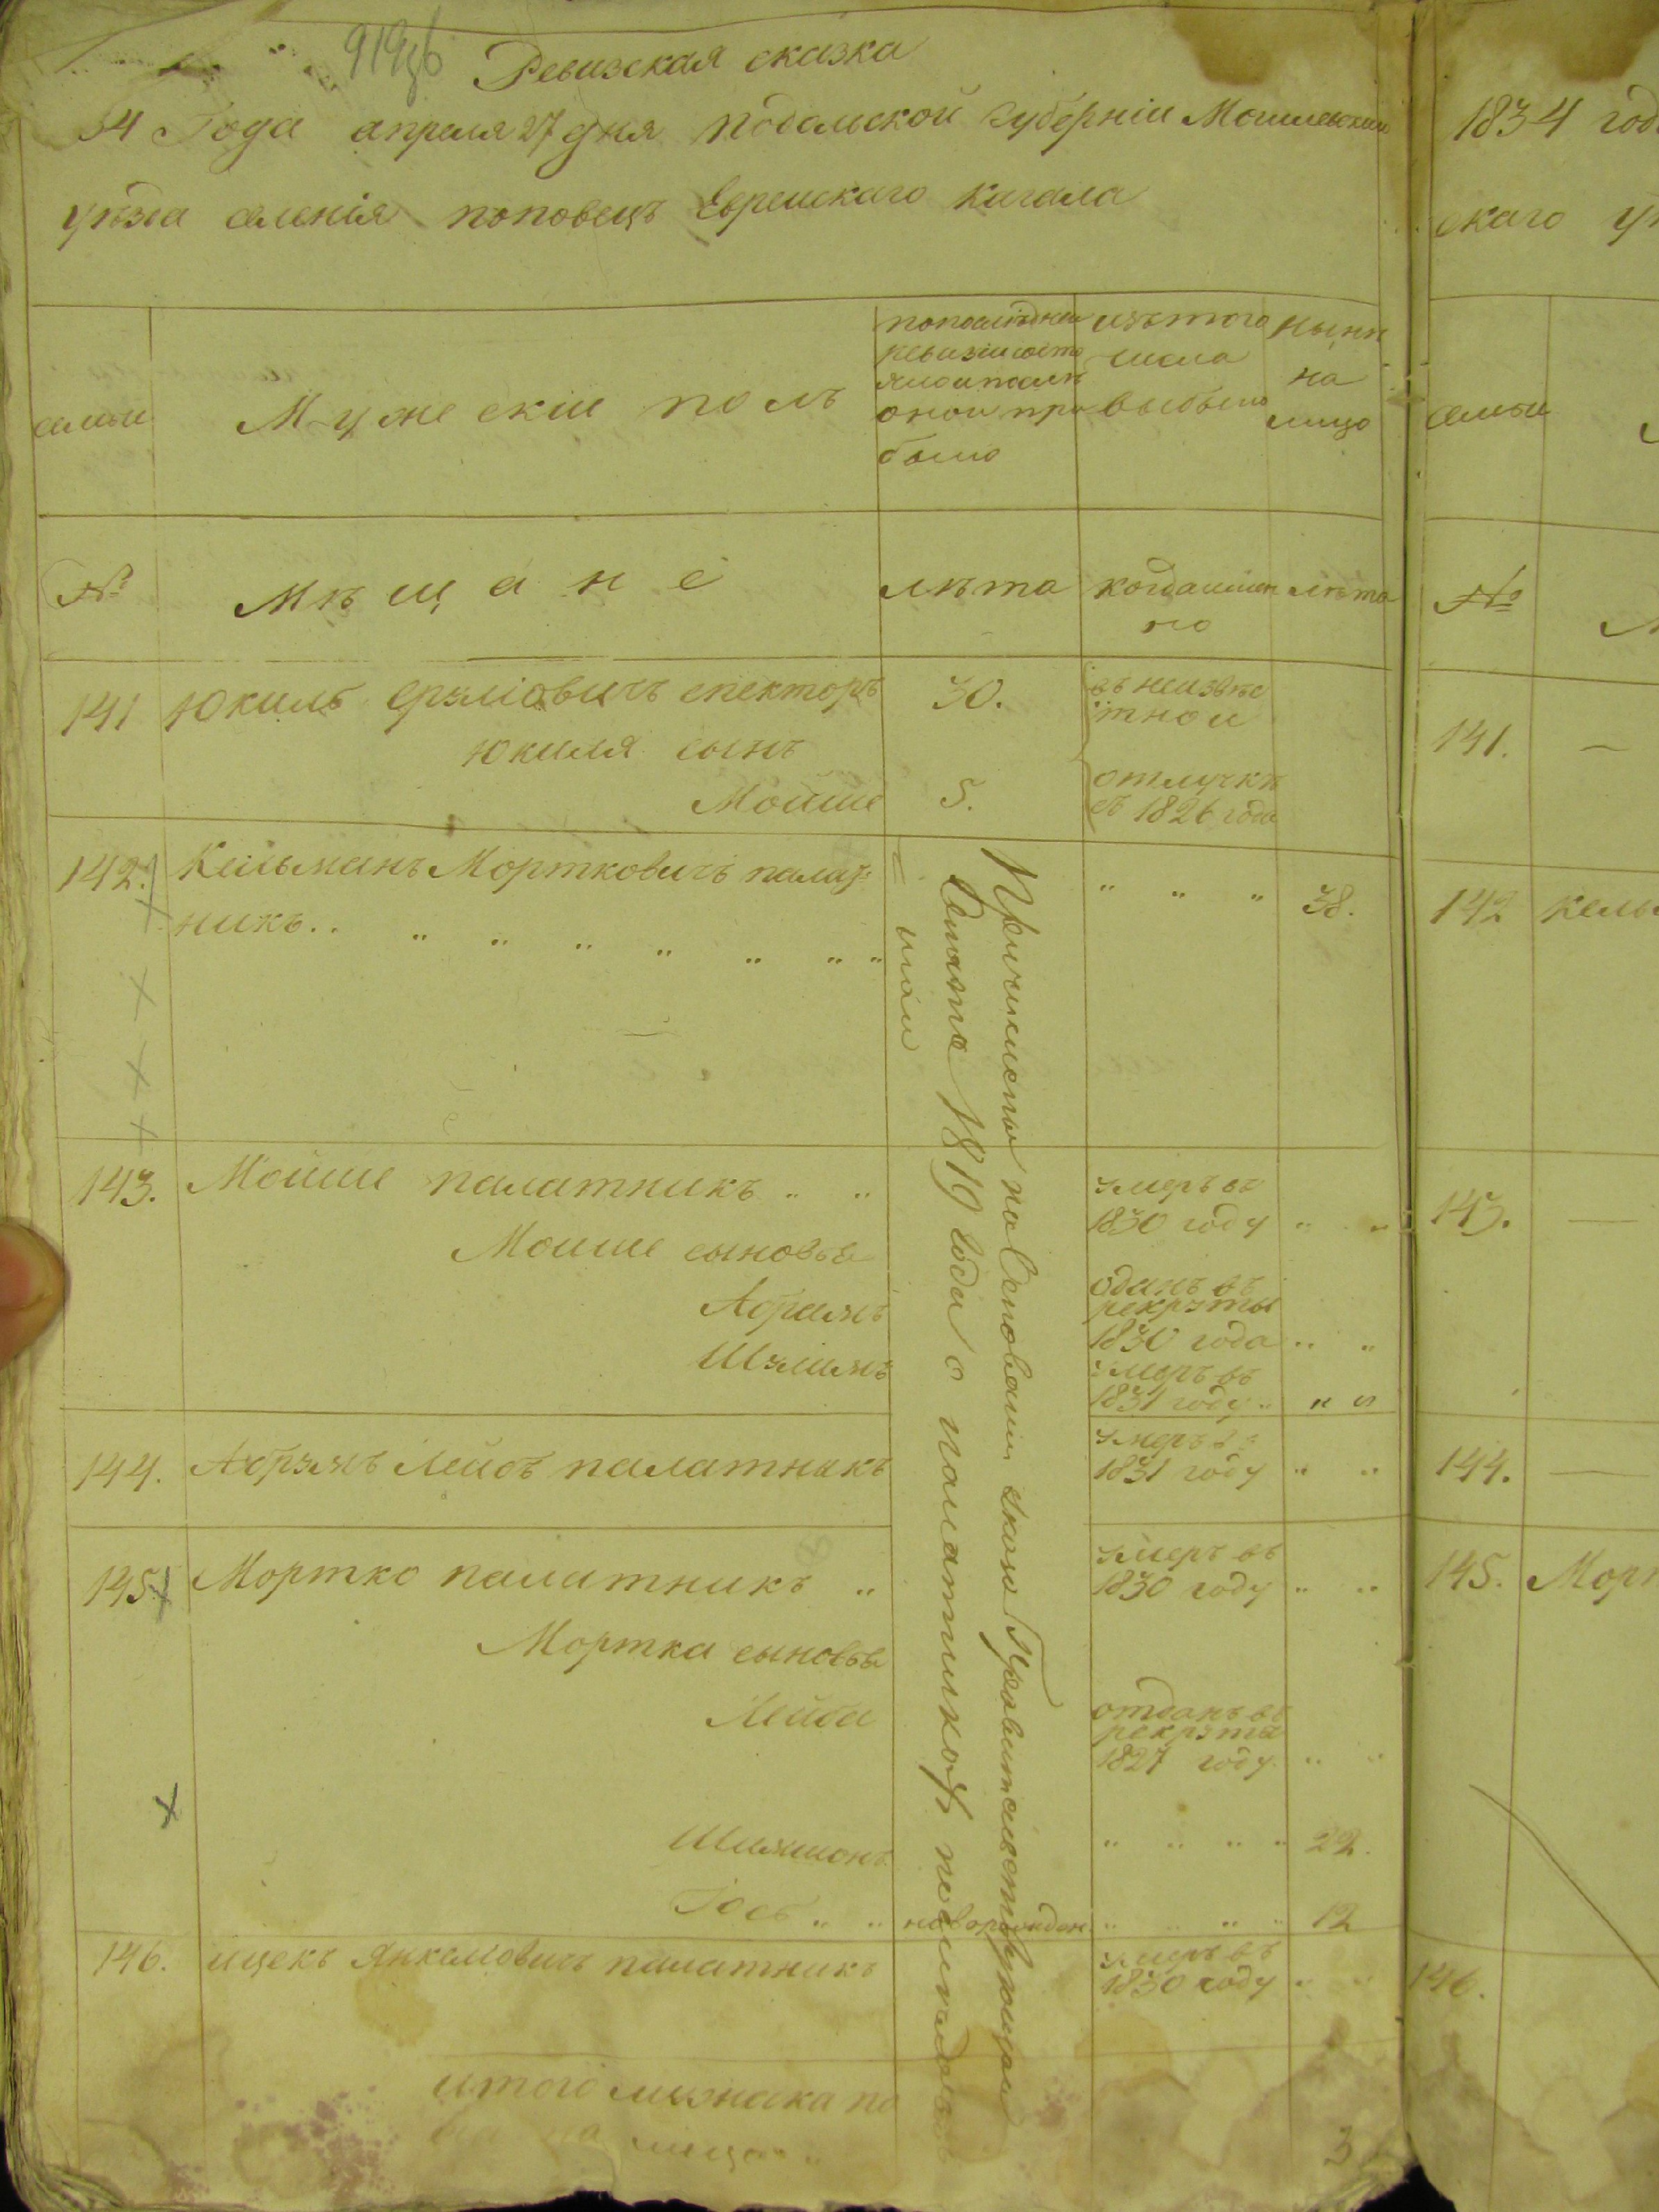 Ревизская сказка
34 Года апреля 27 дня Подольской губерніи Могилевскаго
уезда селенія поповецъ Еврейскаго Кагала
семьи
Мужескій полъ
по последней
ревизіи состо
яло и после
оной при
было
изъ того
числа
выбыло
ныне
на
лицо
№
Мѣщане
лѣта
когда имен
но
лѣта
141 Юкиль Срулiовичъ спекторъ 30. въ неизвѣс
тной
Юкиля сынъ
Мойше 5. отлучкѣ
съ 1826 года
142. Кельманъ Мортковичъ палат
никъ.. " " " 38.
143. Мойше палатникъ " " умеръ въ
1830 году " "
Мошие сыновья
Абрамъ отданъ въ
рекруты
1830 года " "
Шулимъ умеръ въ
1831 году " "
144. Абрумъ Лейбъ палатникъ умеръ въ
1831 году " "
145. Мортко палатникъ " умеръ въ
1830 году " "
Мортка сыновья
Лейба отданъ въ
рекруты
1827 году " "
Шимшонъ " " " " 22.
Іось " " новорожден. " " " " 12
146. ицекъ Янкелiовичъ палатникъ умеръ въ
1830 году " "
Причислены по основаніи указа Правительствующаго
Сената 1819 года о палатникахъ
итого мужеска по
ла на лицо
3
1834 год
скаго у
семьи
№
141. —
142 Кель
143. —
144. —
145. Морт
146.